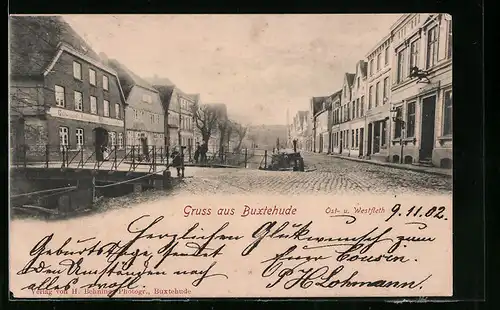 Gruss aus Buxtehude
Ost- u. Westfleth
9.11.02.
Herzlichen Glückwunsch zum
Geburtstage, sendet Euer Cousin.
den Umständen nach
alles wohl. P H Lohmann.
Verlag von H. Behning, Photogr., Buxtehude